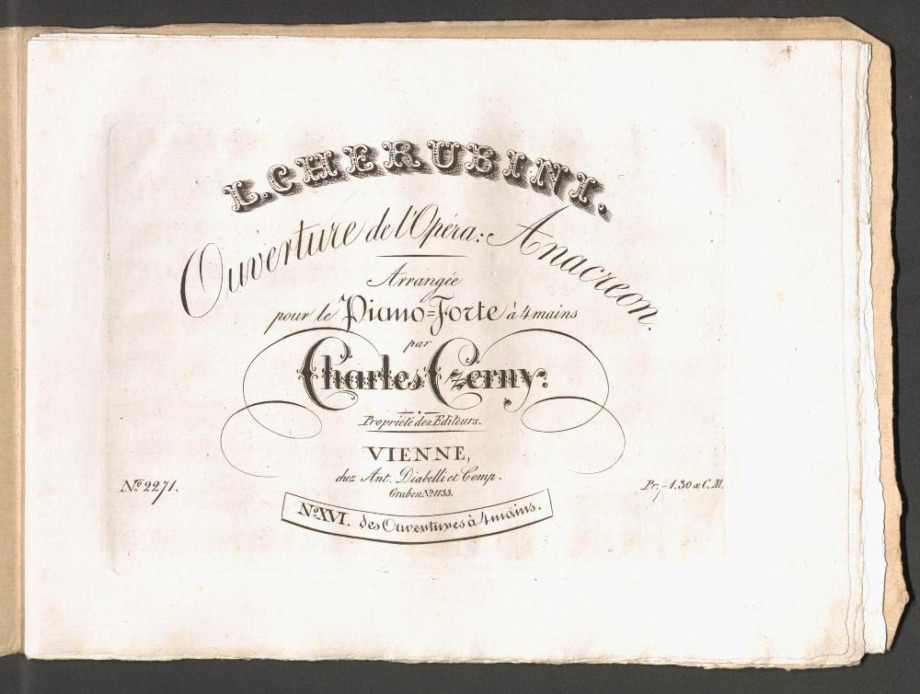 L. CHERUBINI.
Ouverture de l'Opéra: Anacreon.
Arrangée
pour le Piano=Forte à 4 mains
par
Charles Czerny.
Propriété des Editeurs.
VIENNE,
chez Ant. Diabelli et Comp.
Graben No 1133.
No 2271.
Pr. f 1.30 x C.M.
No XVI. des Ouvertures à 4 mains.